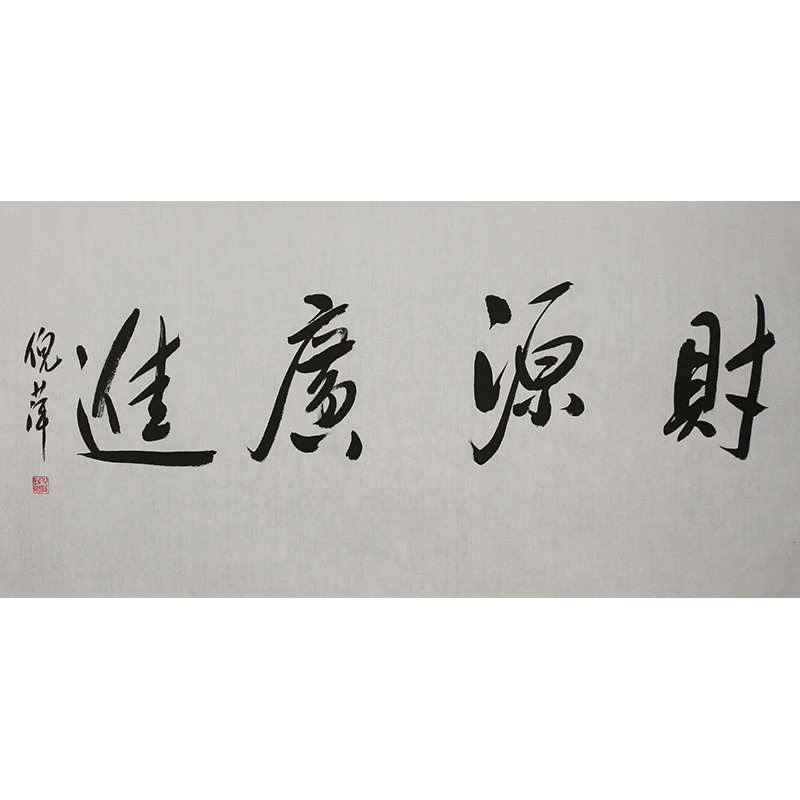 財源廣進
倪萍